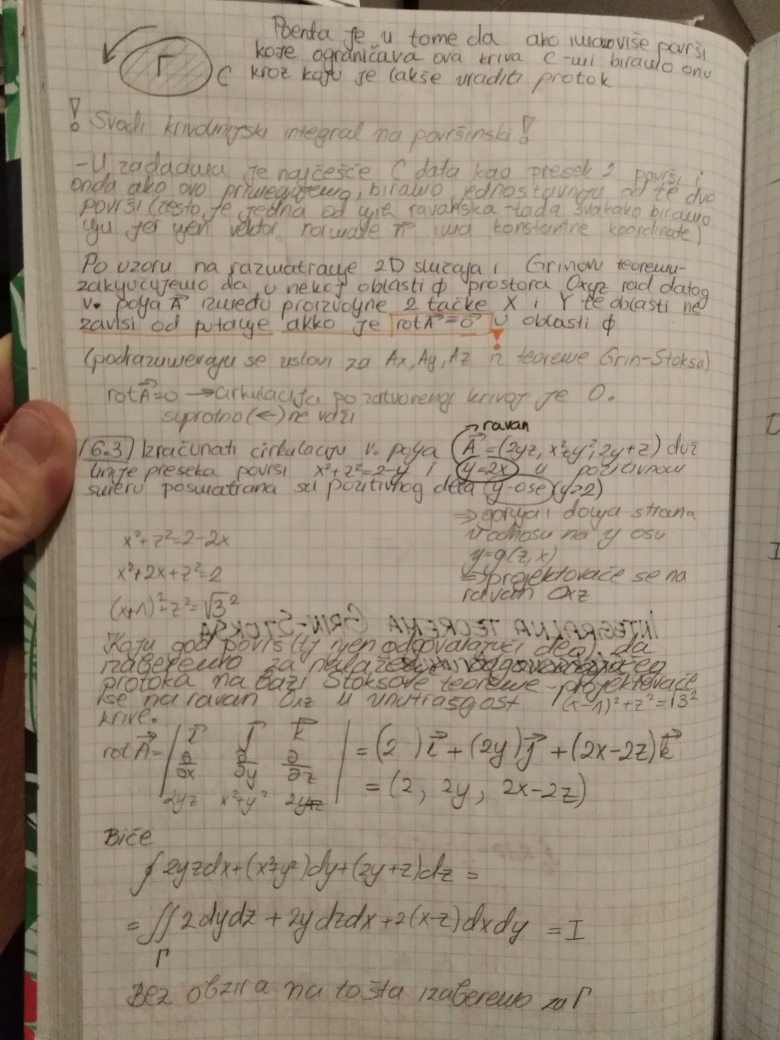 Poenta je u tome da ako imamo više površi
koje ograničava ova kriva C-mi biramo onu
kroz koju je lakše uraditi protok
Γ
C
! Svodi krivolinijski integral na površinski!
-U zadacima je najčešće C data kao presek 2 površi i
onda ako ovo primenjujemo, biramo jednostavniju od te dve
površi (često je jedna od njih ravanska-tada svakako biramo
nju jer njen vektor normale n⃗ ima konstantne koordinate)
Po uzoru na razmatranje 2D slučaja i Grinovu teoremu-
zaključujemo da u nekoj oblasti ϕ prostora Oxyz rad datog
v. polja A⃗ između proizvoljne 2 tačke X i Y te oblasti ne
zavisi od putanje akko je rotA⃗=0⃗ u oblasti ϕ
(podrazumevaju se uslovi za Ax, Ay, Az iz teoreme Grin-Stoksa)
rotA⃗=0 → cirkulacija po zatvorenoj krivoj je 0.
suprotno (←) ne važi
ravan
16.3) Izračunati cirkulaciju v. polja A⃗=(2yz, x²+y², 2y+z) duž
linije preseka površi x²+z²=2-y i y=2x u pozitivnom
smeru posmatrana sa pozitivnog dela y-ose (y>2)
⇒ gornja i donja strana
u odnosu na y osu
y=g(z,x)
⇒ projektovaće se na
ravan Oxz
x²+z²=2-2x
x²+2x+z²=2
(x+1)²+z²=√3²
INTEGRALNA TEOREMA GRIN-STOKSA
Koju god površ (tj njen odgovarajući deo) da
izaberemo za nalaženje odgovarajućeg
protoka na bazi Stoksove teoreme-projektovaće
se na ravan Oxz u unutrašnjost (x-1)²+z²=√3²
krive.
rotA⃗= | i⃗ j⃗ k⃗ | =(2 )i⃗+(2y)j⃗+(2x-2z)k⃗
∂/∂x ∂/∂y ∂/∂z
2yz x²+y² 2y+z = (2, 2y, 2x-2z)
Biće
∮ 2yzdx+(x²+y²)dy+(2y+z)dz =
= ∬ 2dydz + 2ydzdx+2(x-z)dxdy = I
Γ
Bez obzira na to šta izaberemo za Γ